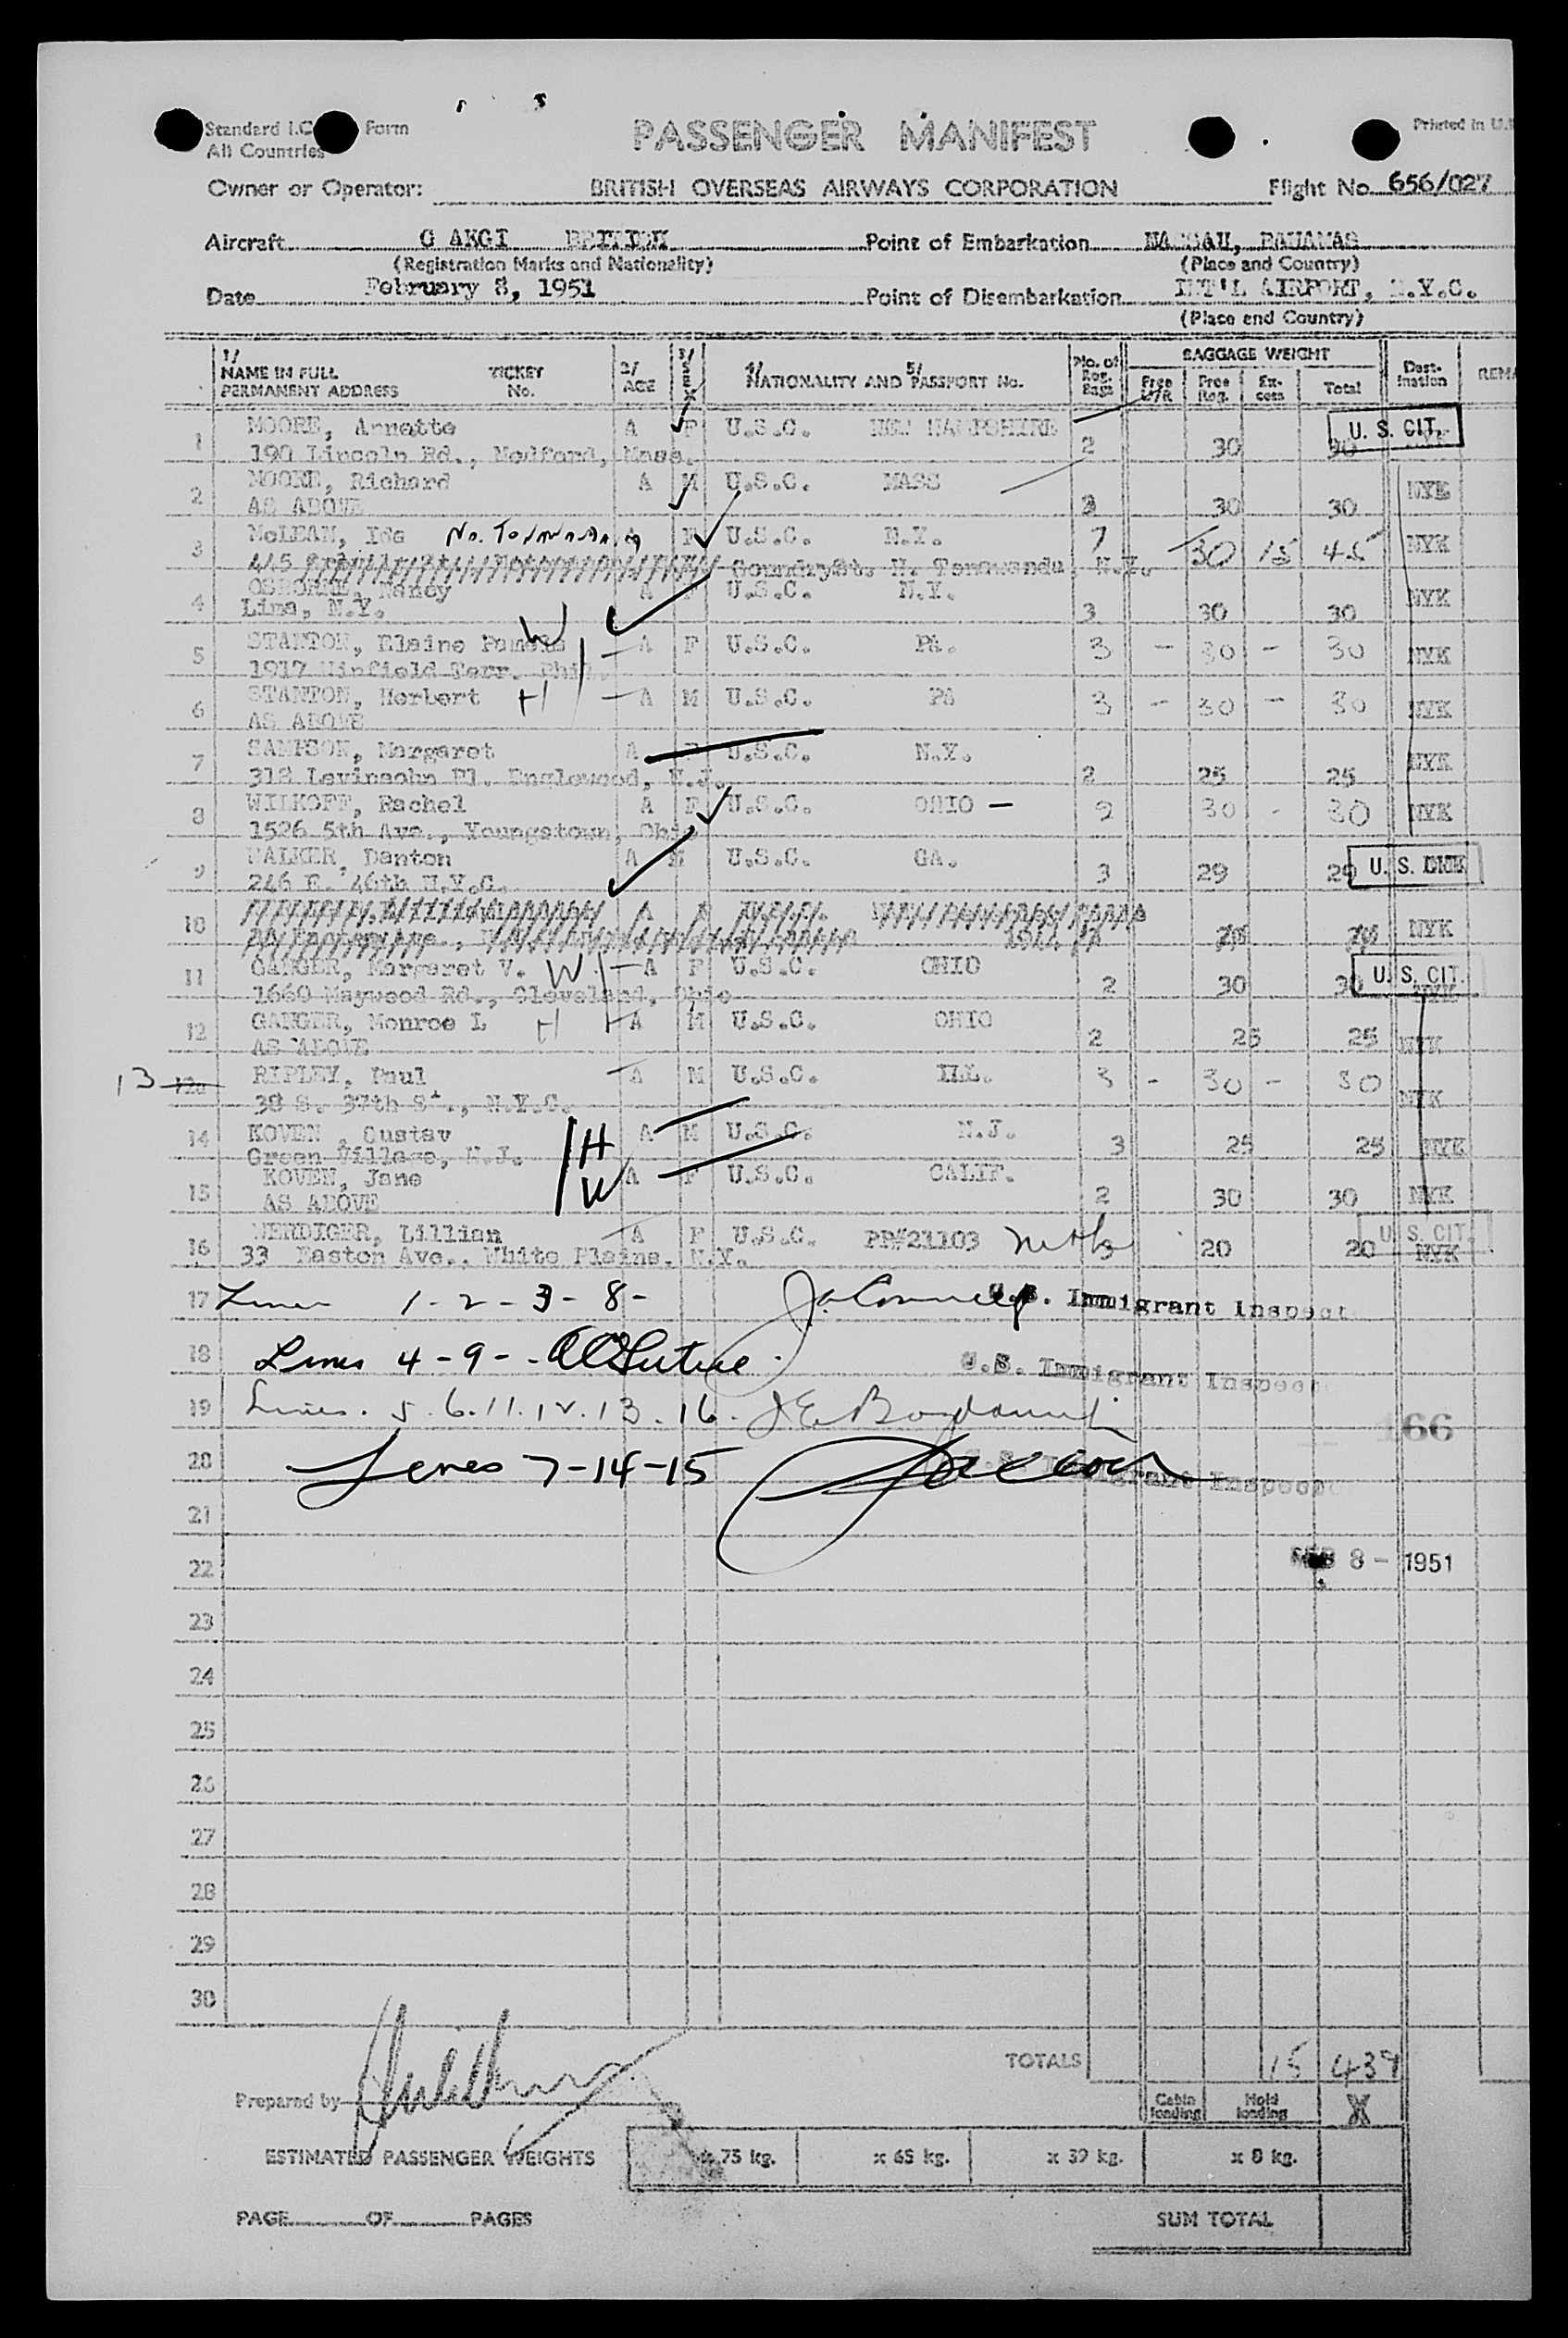 Standard I.C Form
All Countries
PASSENGER MANIFEST
Printed in U.
Owner or Operator: BRITISH OVERSEAS AIRWAYS CORPORATION Flight No. 656/027
Aircraft G AKGI BRITISH Point of Embarkation NASSAU, BAHAMAS
(Registration Marks and Nationality) (Place and Country)
Date February 8, 1951 Point of Disembarkation INT'L AIRPORT, N.Y.C.
(Place and Country)
1/ NAME IN FULL TICKET 2/ 3/ 4/ 5/ No. of BAGGAGE WEIGHT Dest-
PERMANENT ADDRESS No. AGE SEX NATIONALITY AND PASSPORT No. Reg. Bags Free Free Reg. Ex-cess Total ination REMA
1 MOORE, Annette A F U.S.C. NEW HAMPSHIRE U. S. CIT.
190 Lincoln Rd., Medford, Mass. 2 30 30
2 MOORE, Richard A M U.S.C. MASS NYK
AS ABOVE 30 30
3 McLEAN, Ida No. Tonawanda A F U.S.C. N.Y. 7 30 15 45 NYK
445 St. N. Tonawanda, N.Y.
4 OSBORNE, Nancy A F U.S.C. N.Y. NYK
Lima, N.Y. W 3 30 30
5 STANTON, Elaine Pamela A F U.S.C. PA. 3 - 30 - 30 NYK
1917 Winfield Terr. Phil.
6 STANTON, Herbert H A M U.S.C. PA 3 - 30 - 30 NYK
AS ABOVE
7 SAMPSON, Margaret A F U.S.C. N.Y. NYK
318 Levinsohn Pl. Englewood, N.J. 2 25 25
8 WILKOFF, Rachel A F U.S.C. OHIO - 2 30 - 30 NYK
1526 5th Ave., Youngstown, Ohio
9 WALKER, Danton A M U.S.C. GA. U. S. CIT.
246 E. 46th N.Y.C. 3 29 29
10 NYK
11 GANGER, Margaret V. W A F U.S.C. OHIO U. S. CIT.
1660 Maywood Rd., Cleveland, Ohio 2 30 30 NYK
12 GANGER, Monroe L H A M U.S.C. OHIO
AS ABOVE 2 25 25 NYK
13 12a RIPLEY, Paul A M U.S.C. ILL. 3 - 30 - 30
38 S. 37th St., N.Y.C. NYK
14 KOVEN, Gustav H A M U.S.C. N.J.
Green Village, N.J. 3 25 25 NYK
15 KOVEN, Jane W A F U.S.C. CALIF.
AS ABOVE 2 30 30 NYK
16 MENDIGER, Lillian A F U.S.C. PP#21103 U. S. CIT.
33 Easton Ave., White Plains, N.Y. 20 20 NYK
17 Lines 1 - 2 - 3 - 8 - U.S. Immigrant Inspect
18 Lines 4 - 9 - U.S. Immigrant Inspect
19 Lines. 5. 6. 11. 12. 13. 16.
166
20 Lines 7-14-15 U.S. Immigrant Inspect
21
22 FEB 8 - 1951
23
24
25
26
27
28
29
30
TOTALS 15 439
Prepared by Cabin loading Hold loading X
ESTIMATED PASSENGER WEIGHTS x 75 kg. x 65 kg. x 39 kg. x 8 kg.
PAGE OF PAGES SUM TOTAL